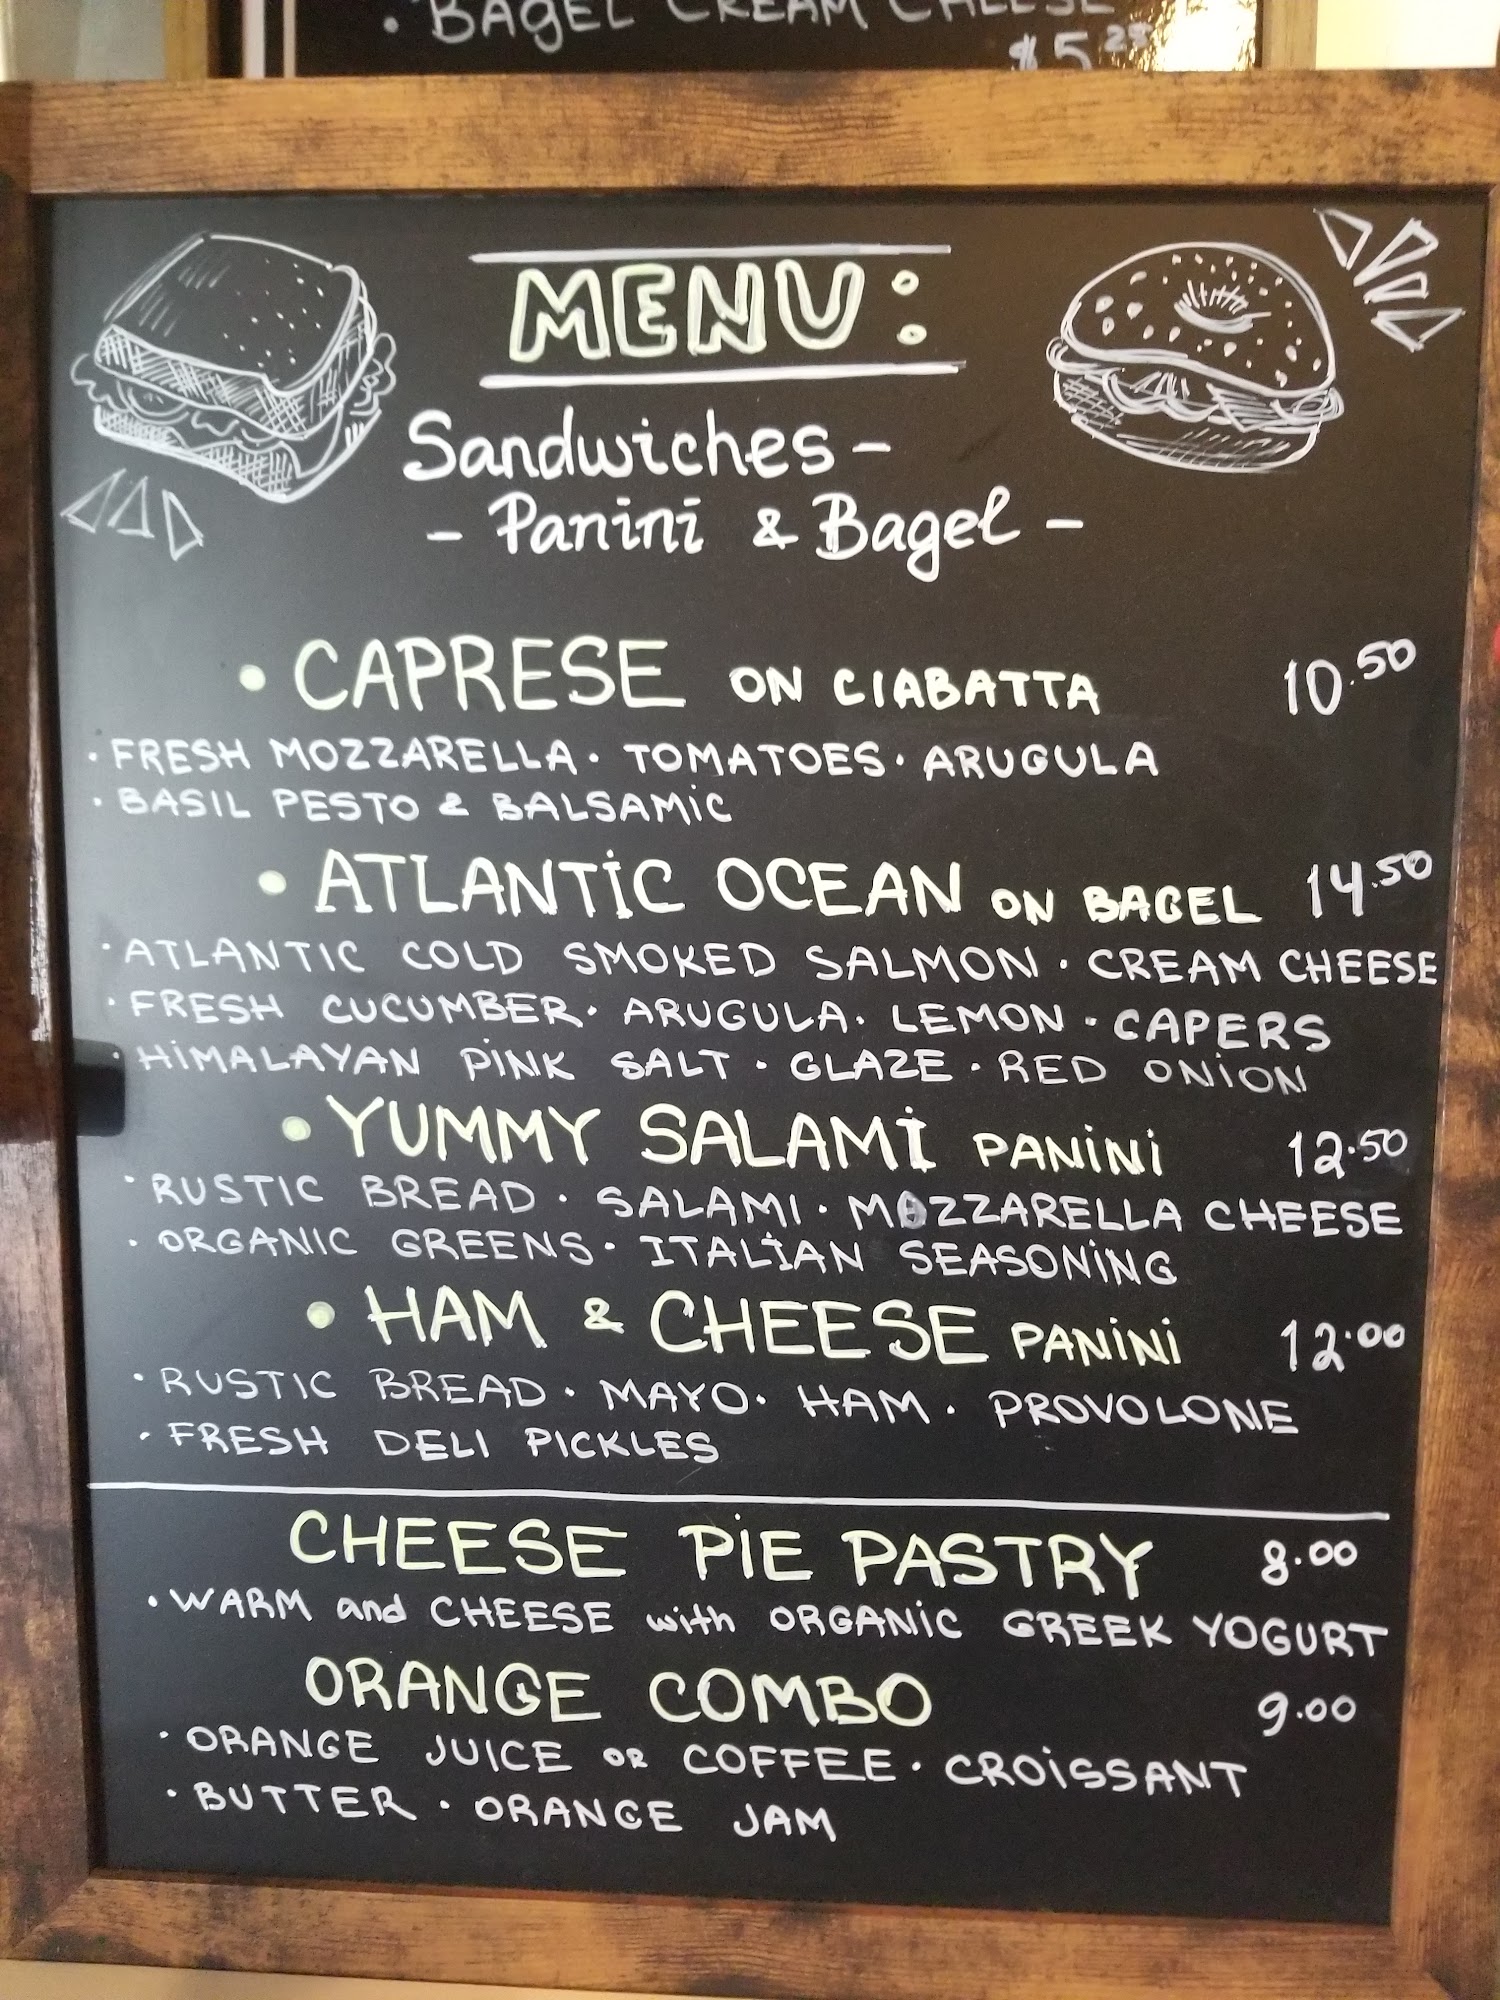 • BAGEL CREAM CHEESE
$5.25
MENU:
Sandwiches -
- Panini & Bagel -
• CAPRESE ON CIABATTA 10.50
• FRESH MOZZARELLA • TOMATOES • ARUGULA
• BASIL PESTO & BALSAMIC
• ATLANTIC OCEAN ON BAGEL 14.50
• ATLANTIC COLD SMOKED SALMON • CREAM CHEESE
• FRESH CUCUMBER • ARUGULA • LEMON • CAPERS
• HIMALAYAN PINK SALT • GLAZE • RED ONION
• YUMMY SALAMI PANINI 12.50
• RUSTIC BREAD • SALAMI • MOZZARELLA CHEESE
• ORGANIC GREENS • ITALIAN SEASONING
• HAM & CHEESE PANINI 12.00
• RUSTIC BREAD • MAYO • HAM • PROVOLONE
• FRESH DELI PICKLES
CHEESE PIE PASTRY 8.00
• WARM and CHEESE with ORGANIC GREEK YOGURT
ORANGE COMBO 9.00
• ORANGE JUICE OR COFFEE • CROISSANT
• BUTTER • ORANGE JAM